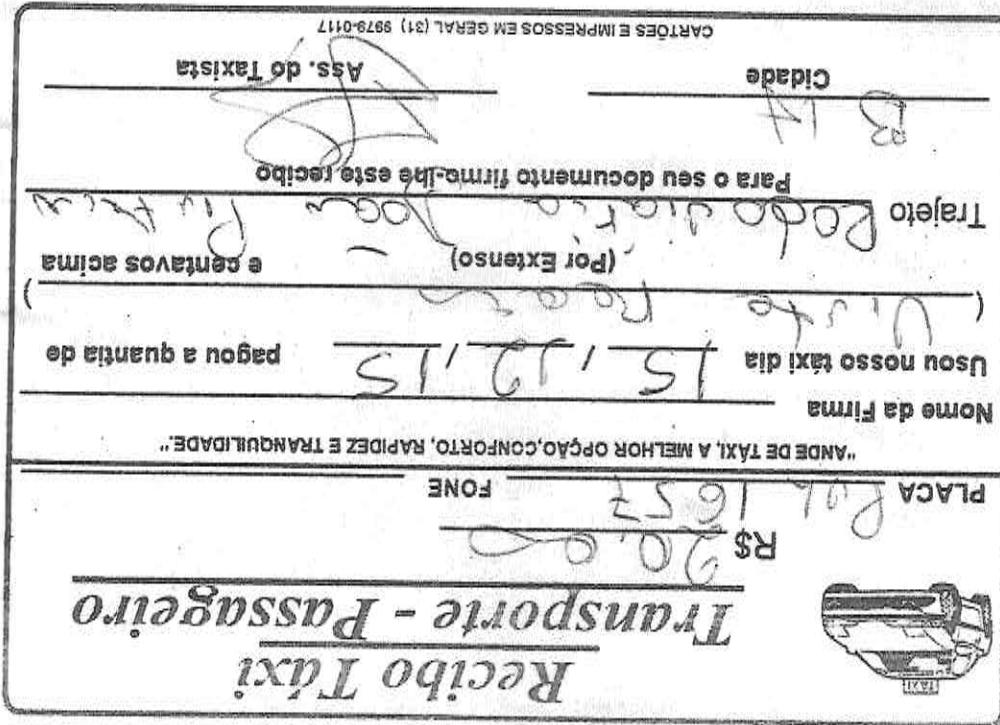 TÁXI
Recibo Táxi
Transporte - Passageiro
R$ 20,00
PLACA 1657 FONE
"ANDE DE TÁXI, A MELHOR OPÇÃO, CONFORTO, RAPIDEZ E TRANQUILIDADE."
Nome da Firma
Usou nosso táxi dia 15, 12, 15 pagou a quantia de
( Vinte Reais )
(Por Extenso) e centavos acima
Trajeto Rodoviaria
Para o seu documento firmo-lhe este recibo
BH
Cidade Ass. do Taxista
CARTÕES E IMPRESSOS EM GERAL (31) 9979-0117